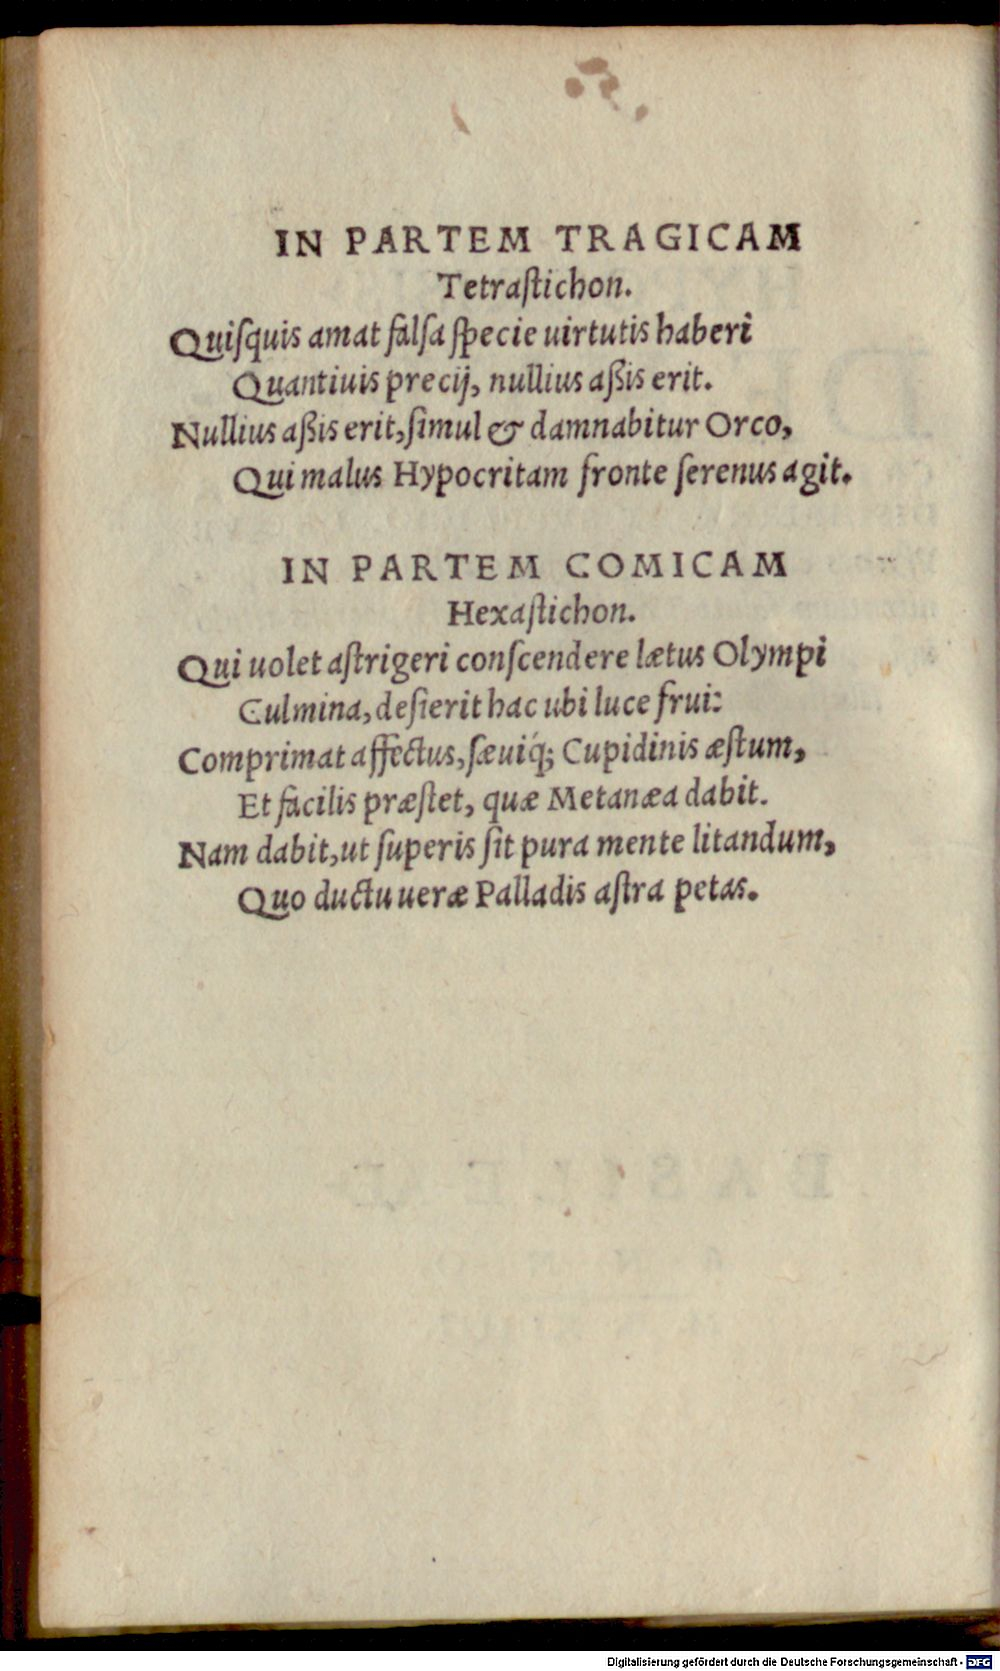 IN PARTEM TRAGICAM
Tetrastichon.
Quisquis amat falsa specie uirtutis haberi
Quantiuis precij, nullius aßis erit.
Nullius aßis erit, simul & damnabitur Orco,
Qui malus Hypocritam fronte serenus agit.
IN PARTEM COMICAM
Hexastichon.
Qui uolet astrigeri conscendere lætus Olympi
Culmina, desierit hac ubi luce frui:
Comprimat affectus, sæuiq́; Cupidinis æstum,
Et facilis præstet, quæ Metanæa dabit.
Nam dabit, ut superis sit pura mente litandum,
Quo ductu ueræ Palladis astra petas.
Digitalisierung gefördert durch die Deutsche Forschungsgemeinschaft - DFG